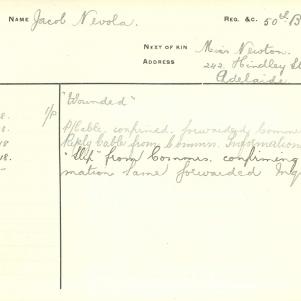 NAME Jacob Nevola. REG. &C. 50th B
NEXT OF KIN Miss Newton.
ADDRESS 242 Hindley St
Adelaide
8. T/P "Wounded"
18. P/Cable confirmed, forwarded Comme
18 Reply Cable from Commn. Information
18. "Slip" from Commrs. confirming
mation same forwarded Inq